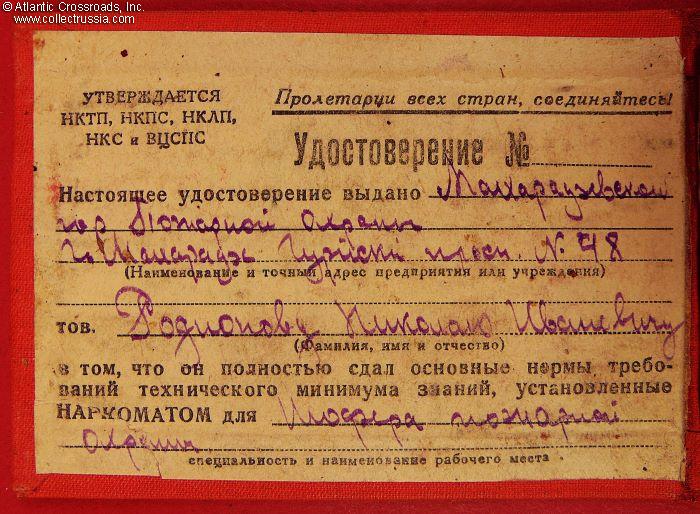 © Atlantic Crossroads, Inc.
www.collectrussia.com
УТВЕРЖДАЕТСЯ
НКТП, НКПС, НКЛП,
НКС и ВЦСПС
Пролетарии всех стран, соединяйтесь!
Удостоверение №
Настоящее удостоверение выдано Махарадзевской
гор Пожарной охраны
г. Махарадзе № 48
(Наименование и точный адрес предприятия или учреждения)
тов. Родионову Николаю Ивановичу
(Фамилия, имя и отчество)
в том, что он полностью сдал основные нормы требо-
ваний технического минимума знаний, установленные
НАРКОМАТОМ для Шофера пожарной
охраны
специальность и наименование рабочего места